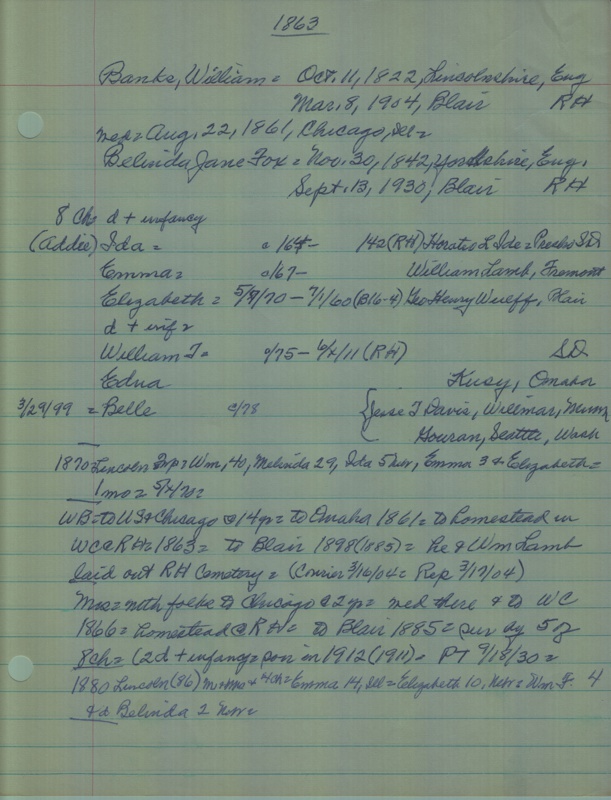 1863
Banks, William = Oct. 11, 1822, Lincolnshire, Eng
Mar. 8, 1904, Blair RH
med = Aug. 22, 1861, Chicago, Ill =
Belinda Jane Fox = Nov. 30, 1842, Yorkshire, Eng.
Sept. 13, 1930, Blair RH
8 Ch d + infancy
(Addie) Ida = c 164 - 142 (RH) Horatio L Ide = SD
Emma = c/67 - William Lamb, Fremont
Elizabeth = 5/9/70 - 7/1/60 (B16-4) Geo Henry Wulff, Blair
d + inf 2
William T = c/75 - 6/x/11 (RH) SD
Edna Kusy, Omaha
3/29/99 = Belle c/78 { Jesse T Davis, Willmar, Minn
Houran, Seattle, Wash
1870 Lincoln = Wm, 40, Melinda 29, Ida 5 Nov, Emma 3 & Elizabeth =
1 mo = 5/x/70 =
WB = to US & Chicago @ 14 yr = to Omaha 1861 = to homestead in
WC @ RH = 1863 = to Blair 1898 (1885) = he & Wm Lamb
laid out RH Cemetery = (Courier 3/16/04 = Rep 3/17/04)
Mrs = with folks to Chicago @ 2 yr = med there & to WC
1866 = homestead @ RH = to Blair 1885 = sur by 5 of
8 ch = (2 d + infancy = son in 1912 (1911) - PT 9/18/30 =
1880 Lincoln (86) + 4 ch = Emma 14, Ill = Elizabeth 10, Nebr = Wm F. 4
& d Belinda 2 Nebr =